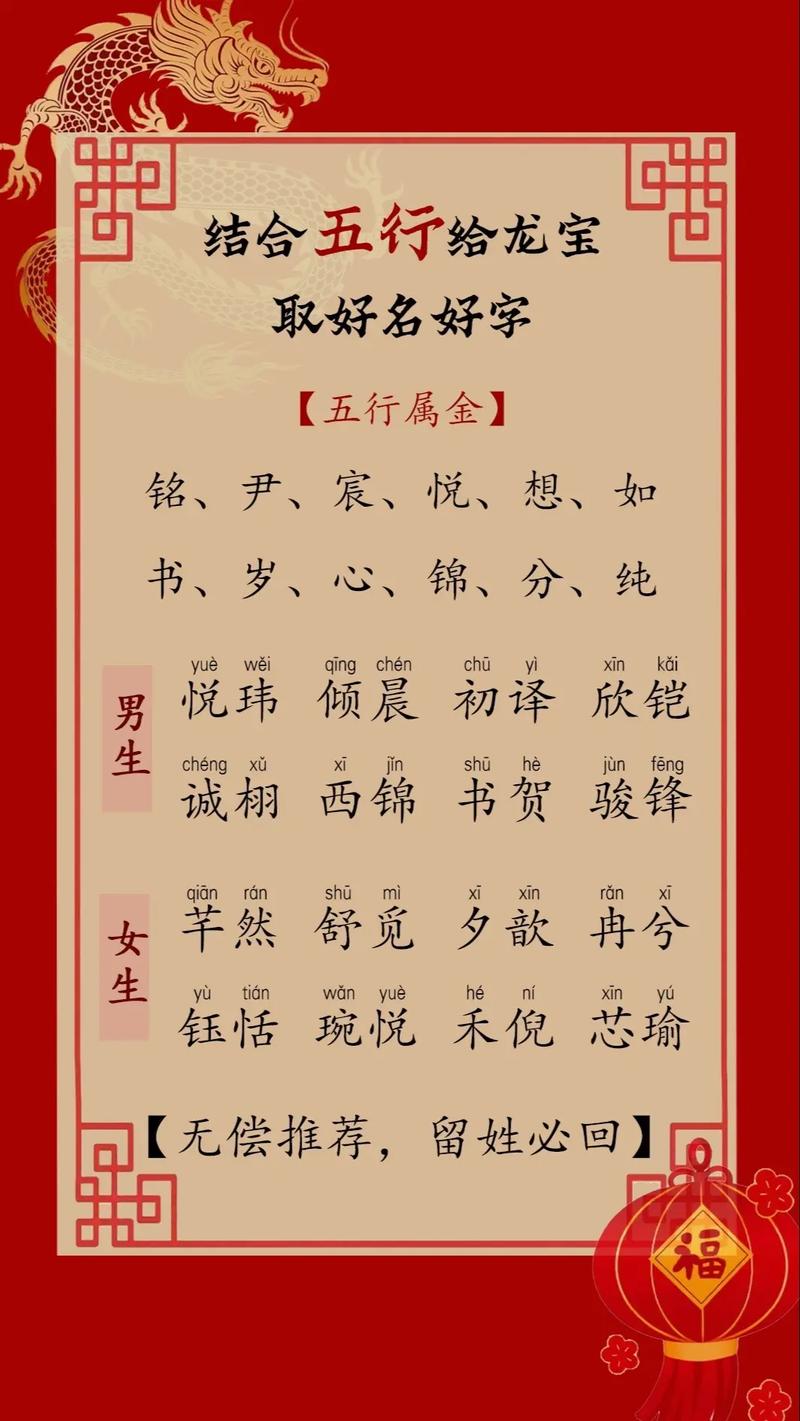 结合五行给龙宝
取好名好字
【五行属金】
铭、尹、宸、悦、想、如
书、岁、心、锦、分、纯
男生
yuè wěi qīng chén chū yì xīn kǎi
悦玮 倾晨 初译 欣铠
chéng xǔ xī jǐn shū hè jùn fēng
诚栩 西锦 书贺 骏锋
女生
qiān rán shū mì xī xīn rǎn xī
芊然 舒觅 夕歆 冉兮
yù tián wǎn yuè hé ní xīn yú
钰恬 琬悦 禾倪 芯瑜
【无偿推荐，留姓必回】
福